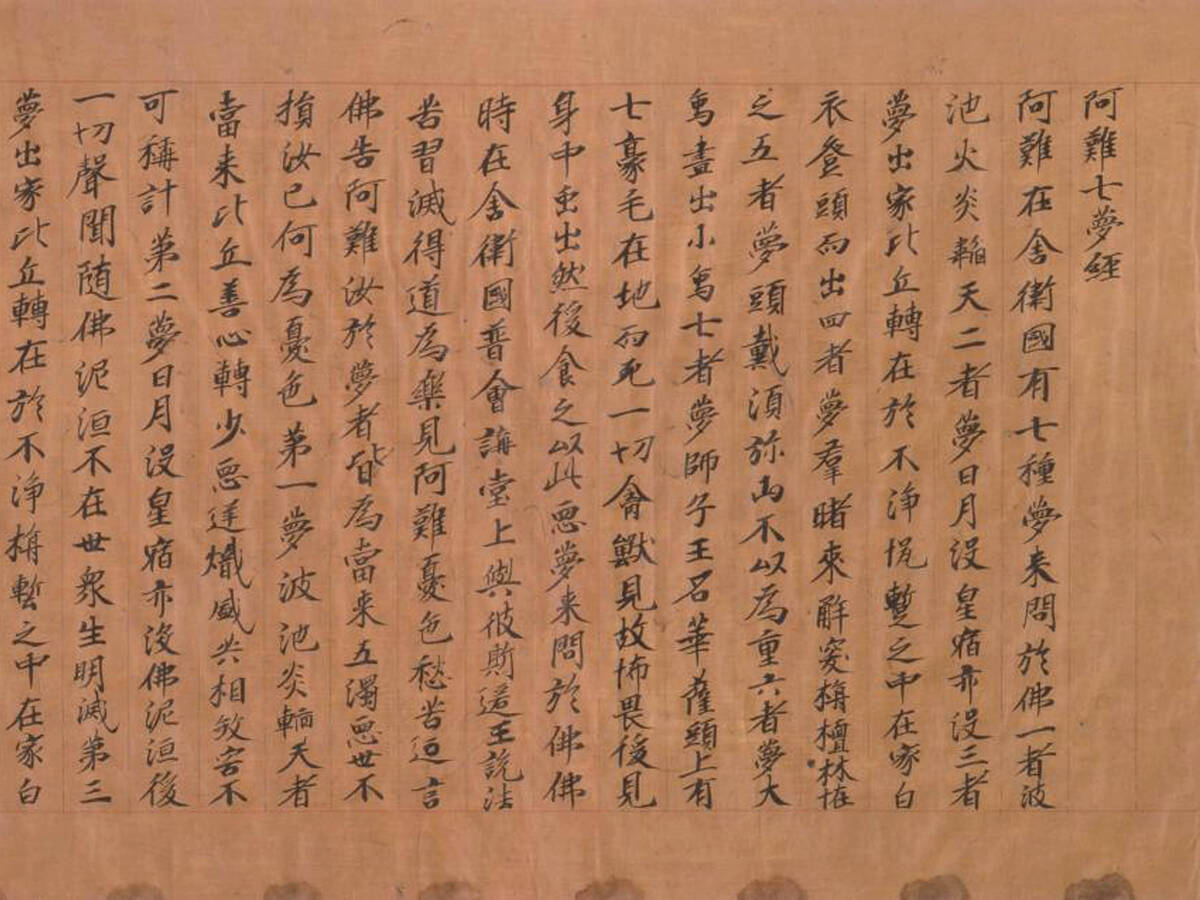 阿難七夢經
阿難在舍衛國有七種夢来問於佛一者波
池火炎韜天二者夢日月没皇宿亦没三者
夢出家比丘轉在於不淨坑塹之中在家白
衣登頭而出四者夢羣睹來觝突栴檀林恠
之五者夢頭戴湏弥山不以為重六者夢大
為盡出小為七者夢師子王名華薩頭上有
七豪毛在地而死一切禽獸見故怖畏後見
身中虫出然後食之以此惡夢来問於佛佛
時在舍衛國普會講堂上與彼斯遝王說法
苦習滅得道為樂見阿難憂色愁苦迊言
佛告阿難汝於夢者皆為當来五濁惡世不
損汝已何為憂色第一夢波池炎輪天者
當来比丘善心轉少惡逆熾盛共相攷害不
可稱計第二夢日月没皇宿亦没佛泥洹後
一切聲聞随佛泥洹不在世衆生明滅第三
夢出家比丘轉在於不淨栴塹之中在家白